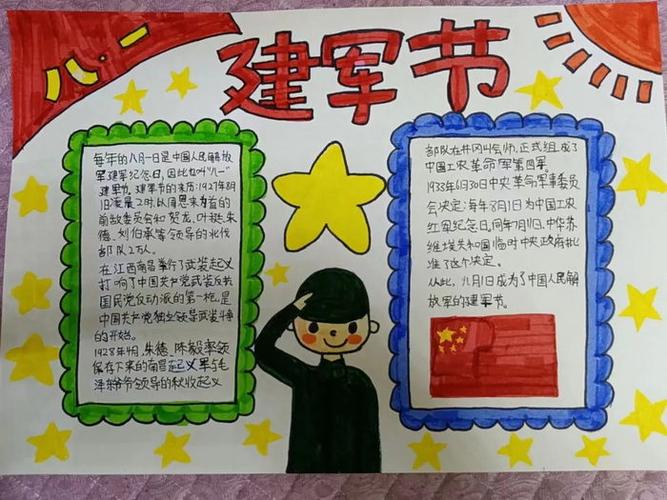 八一
建军节
每年的八月一日是中国人民解放
军建军纪念日,因此也叫"八一"
建军节。建军节的来历:1927年8月
1日凌晨2时,以周恩来为首的
前敌委员会和贺龙、叶挺、朱
德、刘伯承等领导的北伐
部队2万人。
在江西南昌举行了武装起义
打响了中国共产党武装反抗
国民党反动派的第一枪,是
中国共产党独立领导武装斗争
的开始。
1928年4月,朱德、陈毅率领
保存下来的南昌起义军与毛
泽东爷爷领导的秋收起义
部队在井冈山会师,正式组成了
中国工农革命军第四军。
1933年6月30日中央革命军事委员
会决定:每年8月1日为中国工农
红军纪念日,同年7月11日,中华苏
维埃共和国临时中央政府批
准了这个决定。
从此,八月1日成为了中国人民解
放军的建军节。